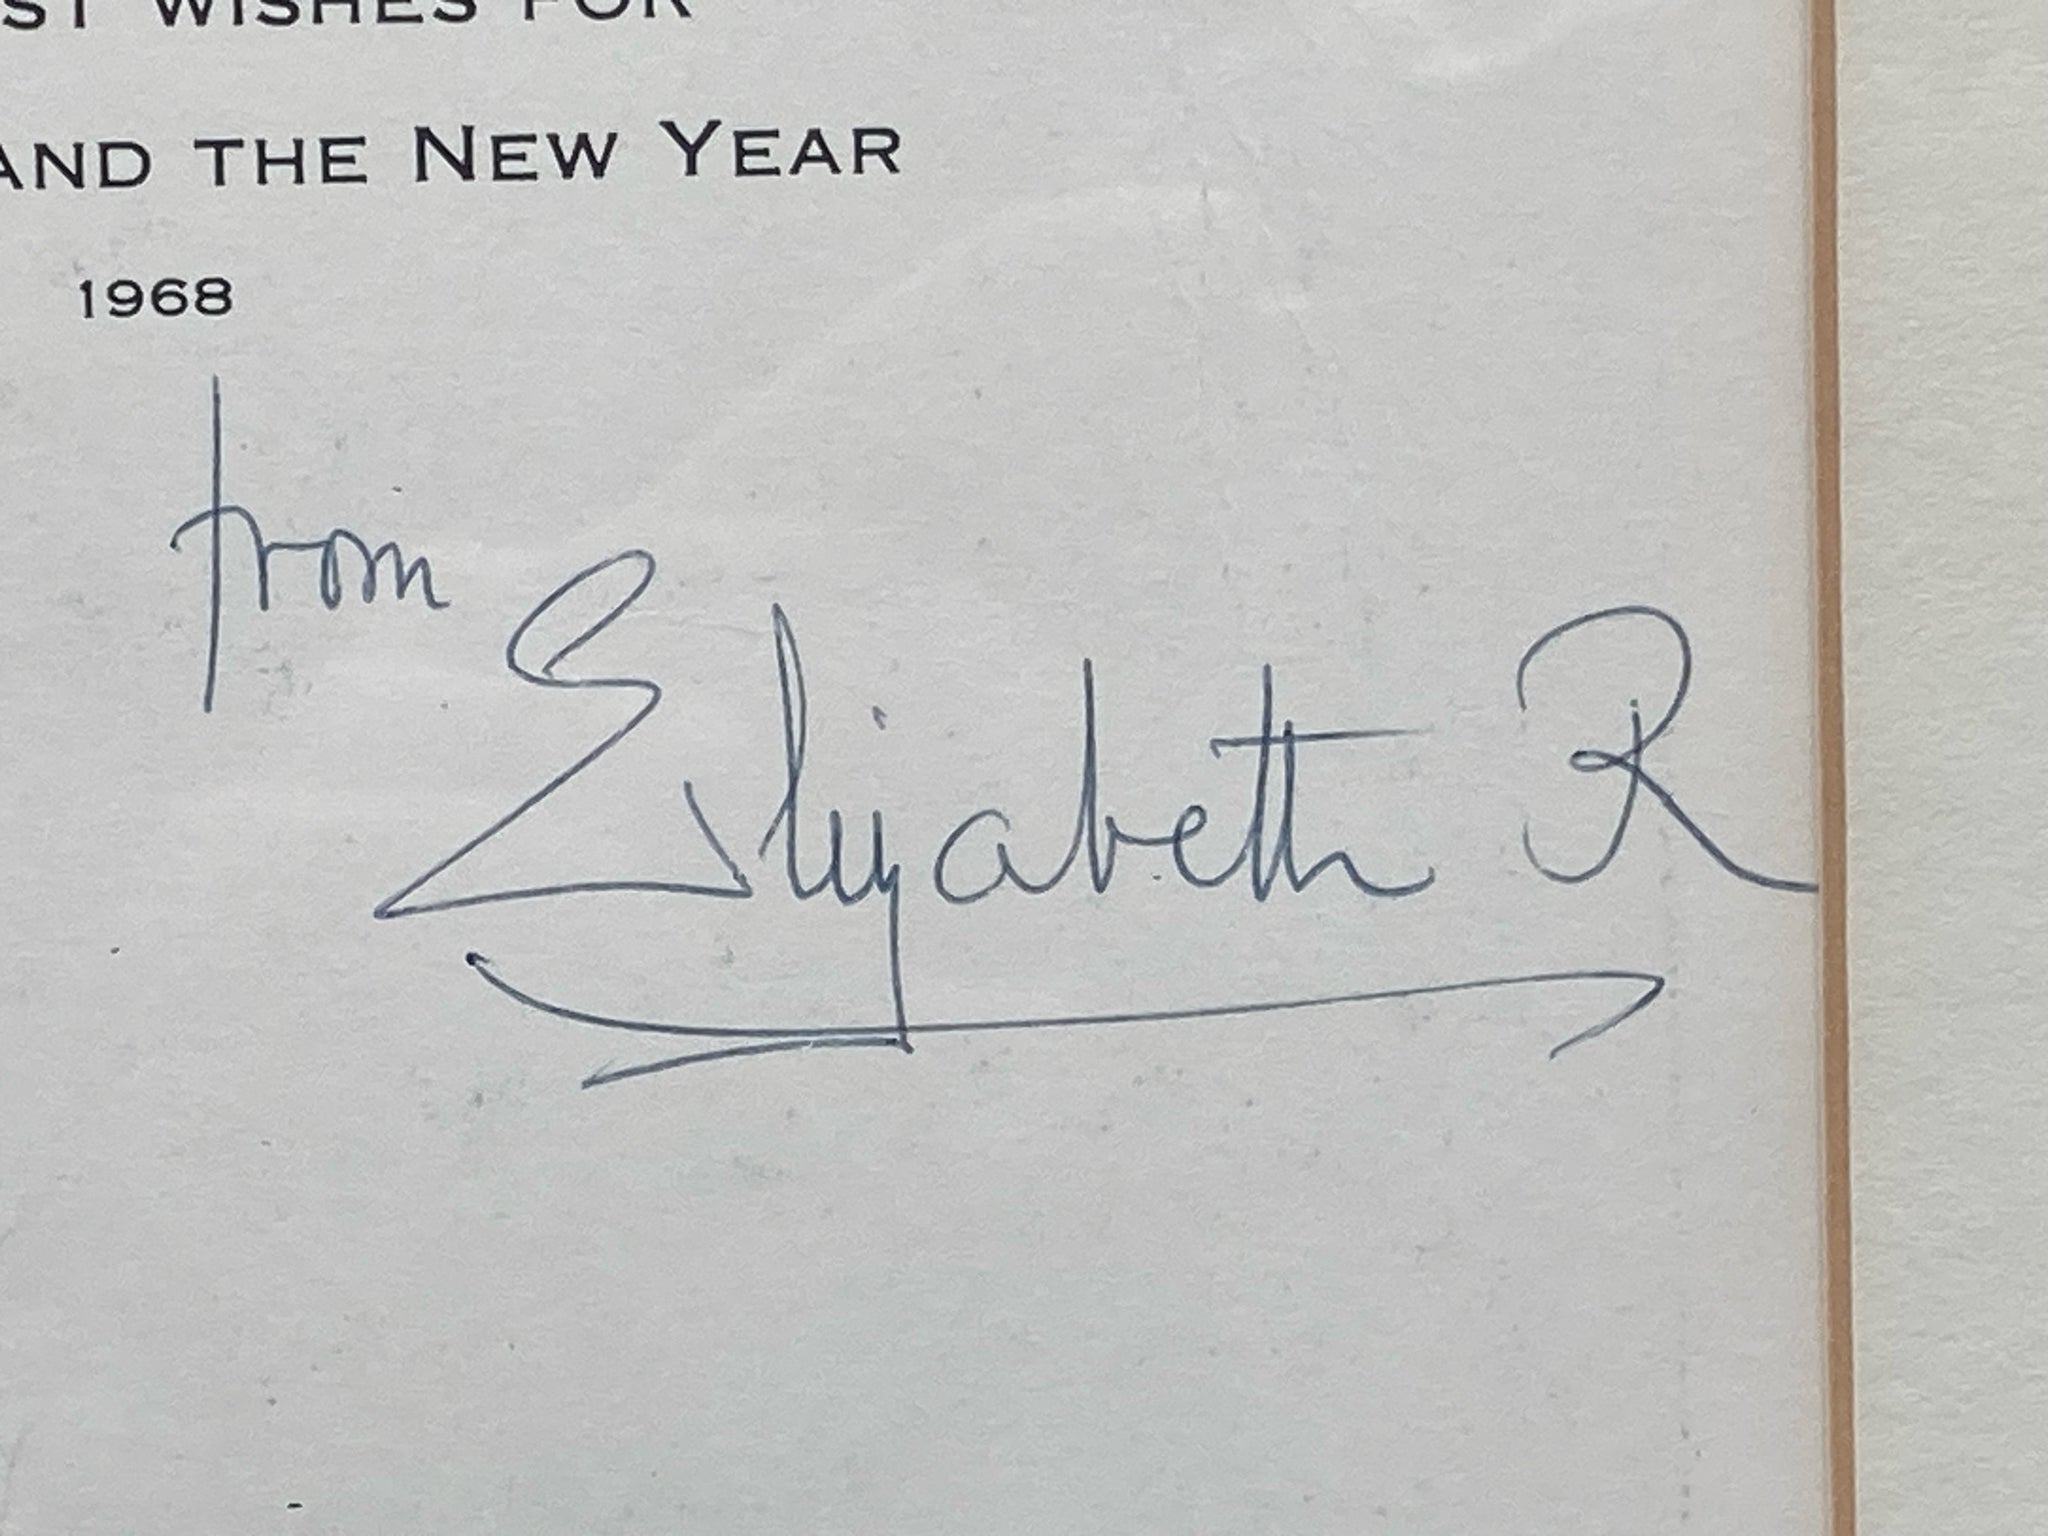 ST WISHES FOR
AND THE NEW YEAR
1968
from
Elizabeth R